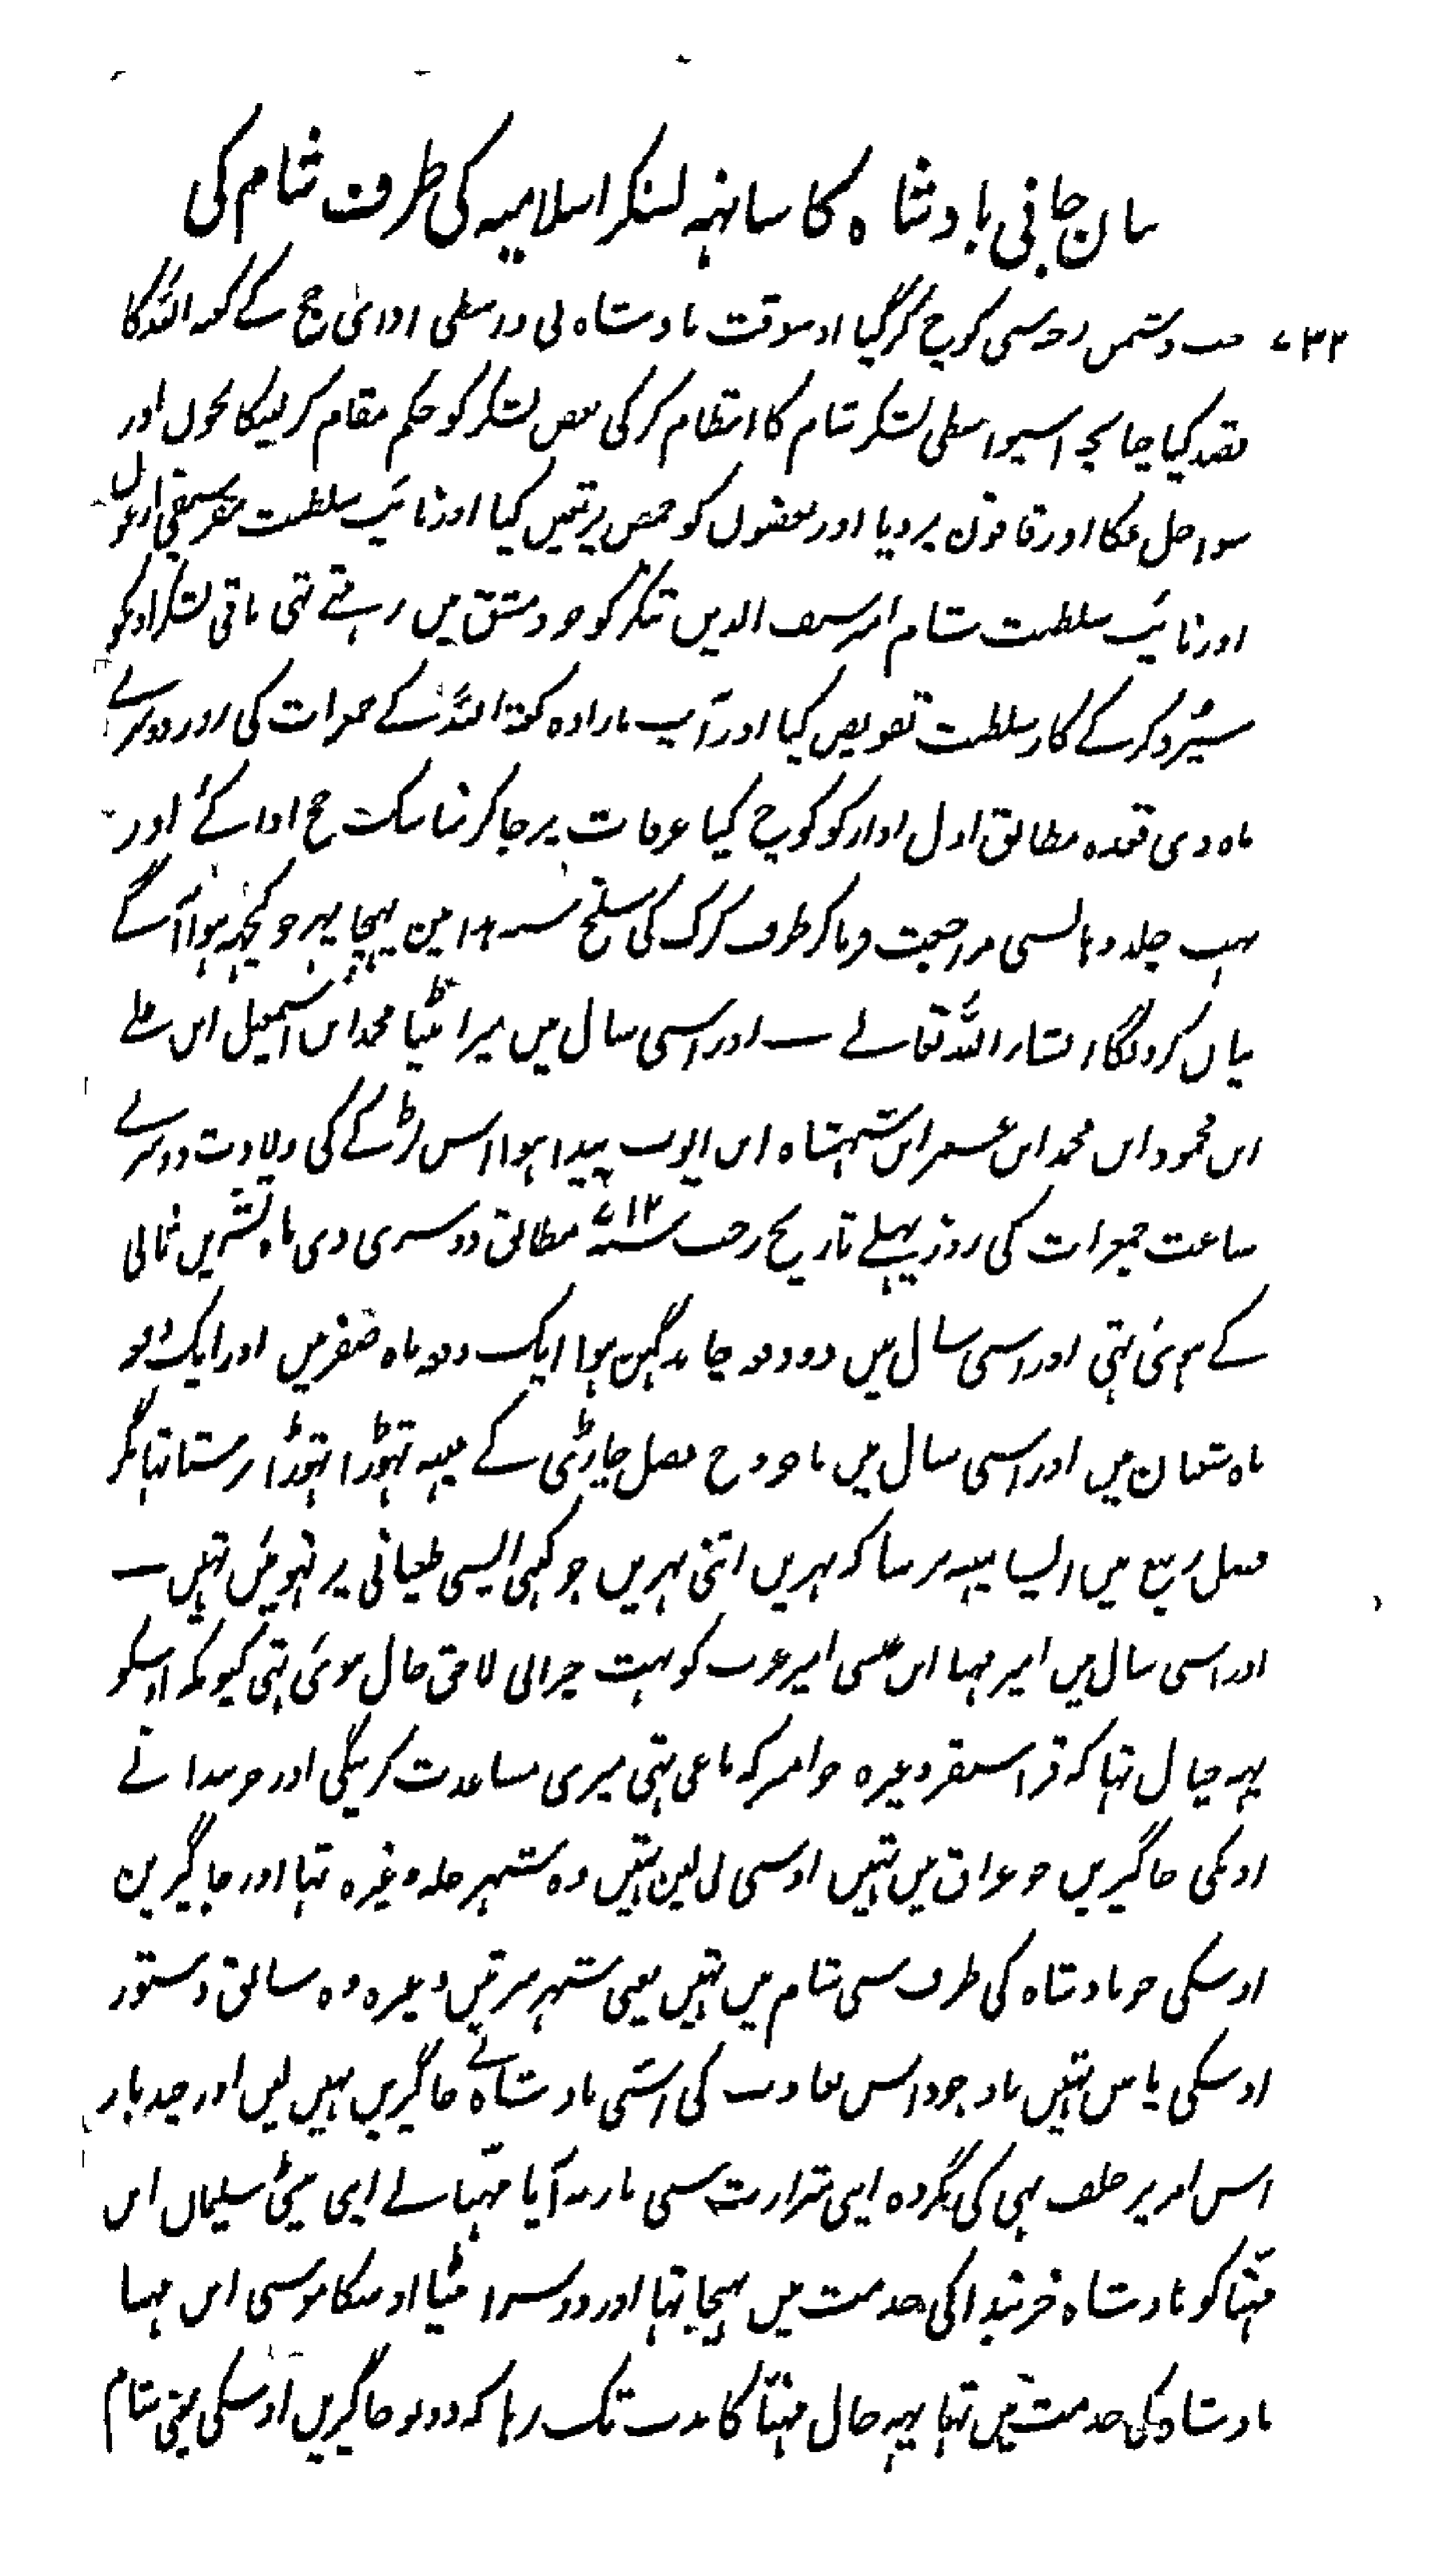 بیان جانی بادشاہ کا ساتھہ لشکر اسلامیہ کی طرف شام کی
۷۳۲ جب دشمن رحبہ سی کوچ کرگیا اوسوقت بادشاہ نی واسطی ادائی حج کے کعبہ اللہ کا
قصد کیا چنانچہ اسیواسطی لشکر شام کا انتظام کرکی بعض لشکر کو حکم مقام کرنیکا لجون اور
سواحل عکا اور قاقون پر دیا اور بعضوں کو حمص پر تعین کیا اور نائب سلطنت مصر سیف ارغون
اور نائب سلطنت شام امیر سیف الدین تنکز کو جو دمشق میں رہتے تہی باقی لشکر اونکو
سپرد کرکے کار سلطنت تفویض کیا اور آپ بارادہ کعبۃ اللہ کے جمعرات کی روز دوسرے
ماہ ذی قعدہ مطابق اول اذار کو کوچ کیا عرفات پر جاکر مناسک حج ادا کئے اور
بہت جلد وہانسی مراجعت فرماکر طرف کرک کی سلخ سنہ میں پہنچا پہر جو کچہہ ہوا آگے
بیان کرونگا انشاء اللہ تعالے ــ اور اسی سال میں میرا بیٹا محمد ابن اسمعیل ابن علے
ابن محمود ابن محمد ابن عمر ابن شہنشاہ ابن ایوب پیدا ہوا اس لڑکے کی ولادت دوسرے
ساعت جمعرات کی روز پہلے تاریخ رجب سنہ ۷۱۲ مطابق دوسری دی ماہ تشرین ثانی
کے ہوئی تہی اور اسی سال میں دو دفعہ چاند گہن ہوا ایک دفعہ ماہ صفر میں اور ایک دفعہ
ماہ شعبان میں اور اسی سال میں باوجود فصل جاڑی کے مینہہ تہوڑا تہوڑا برستا تہا مگر
فصل ربیع میں ایسا مینہہ برسا کہ نہریں اتنی بہریں جو کبہی ایسی طغیانی پر نہوئیں تہیں ــ
اور اسی سال میں امیر مہنا ابن عیسی امیر عرب کو بہت حیرانی لاحق حال ہوئی تہی کیونکہ اوسکو
یہہ خیال تہا کہ قراسنقر وغیرہ جو امیر کہ باغی تہی میری مساعدت کرینگی اور خربندا نے
اونکی جاگیریں جو عراق میں تہیں اوسی لی لین تہیں وہ شہر حلہ وغیرہ تہا اور جاگیرین
اوسکی جو بادشاہ کی طرف سی شام میں تہیں یعنی شہر سرمین وغیرہ وہ سابق دستور
اوسکی پاس تہیں باوجود اس بغاوت کی اسّی بادشاہ نے جاگیریں نہیں لیں اور چند بار
اس امر پر حلف بہی کی مگر وہ اپنی شرارت سی باز نہ آیا مہنّا نے اپنی بیٹی سلیمان ابن
مہنّا کو بادشاہ خربندا کی خدمت میں بہیجا تہا اور دوسرا بیٹا اوسکا موسی ابن مہنا
بادشاہ کی خدمت میں تہا یہہ حال مہنّا کا مدت تک رہا کہ دونو جاگیریں اوسکی یعنی شام